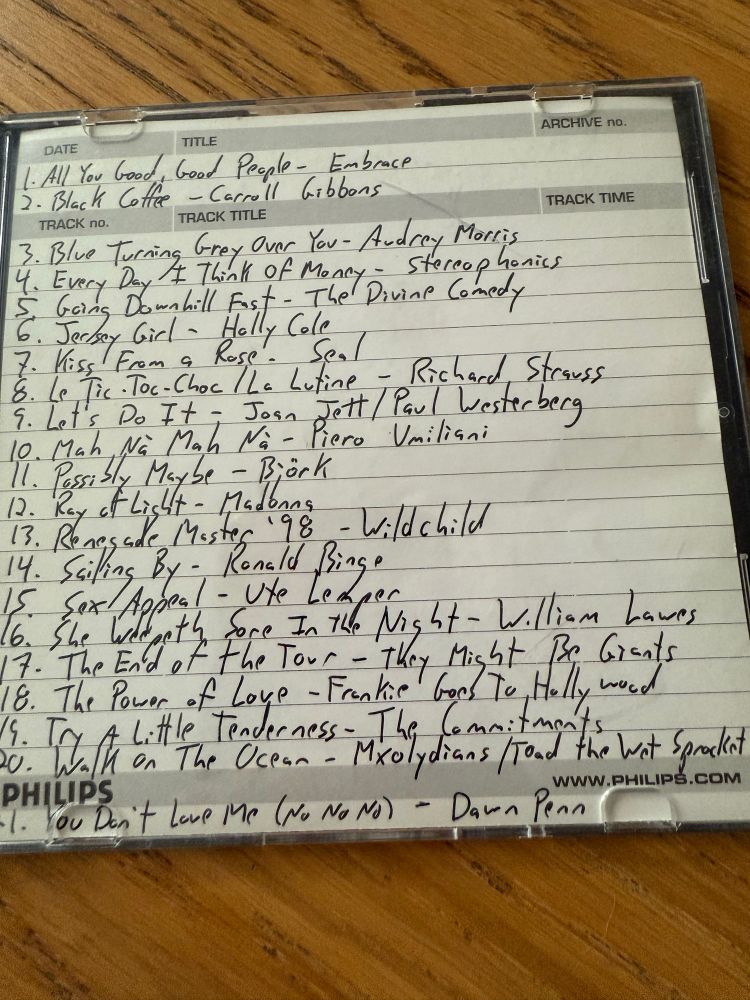 DATE TITLE ARCHIVE no.
1. All You Good, Good People - Embrace
2. Black Coffee - Carroll Gibbons
TRACK no. TRACK TITLE TRACK TIME
3. Blue Turning Grey Over You - Audrey Morris
4. Every Day I Think Of Money - Stereophonics
5. Going Downhill Fast - The Divine Comedy
6. Jersey Girl - Holly Cole
7. Kiss From a Rose - Seal
8. Le Tic-Toc-Choc / La Lutine - Richard Strauss
9. Let's Do It - Joan Jett / Paul Westerberg
10. Mah Nà Mah Nà - Piero Umiliani
11. Possibly Maybe - Björk
12. Ray of Light - Madonna
13. Renegade Master '98 - Wildchild
14. Sailing By - Ronald Binge
15. Sex Appeal - Ute Lemper
16. She Weepeth Sore In The Night - William Lawes
17. The End of the Tour - They Might Be Giants
18. The Power of Love - Frankie Goes To Hollywood
19. Try A Little Tenderness - The Commitments
20. Walk on The Ocean - Mxolydians / Toad the Wet Sprocket
PHILIPS WWW.PHILIPS.COM
1. You Don't Love Me (No No No) - Dawn Penn